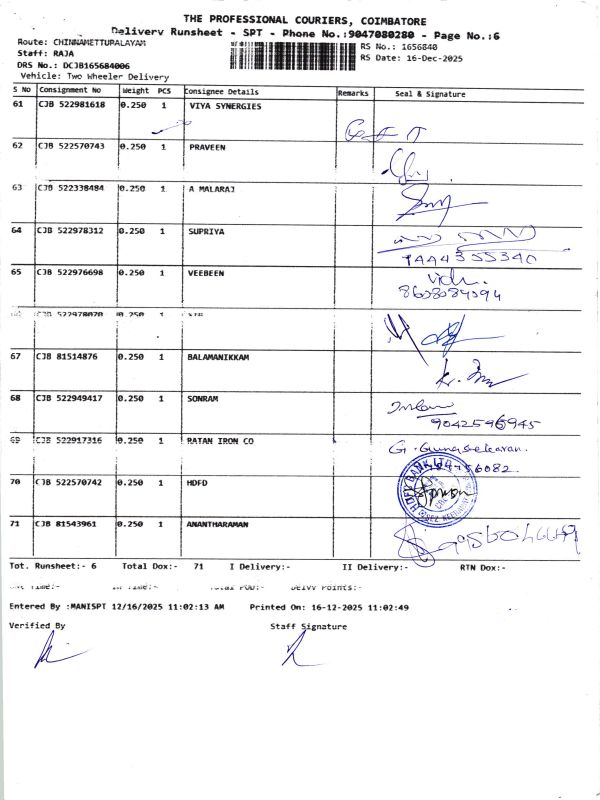 THE PROFESSIONAL COURIERS, COIMBATORE
Delivery Runsheet - SPT - Phone No.:9047080280 - Page No.:6
Route: CHINNAMETTUPALAYAM
Staff: RAJA
DRS No.: DCJB165684006
Vehicle: Two Wheeler Delivery
RS No.: 1656840
RS Date: 16-Dec-2025
S No Consignment No Weight PCS Consignee Details Remarks Seal & Signature
61 CJB 522981618 0.250 1 VIYA SYNERGIES
62 CJB 522570743 0.250 1 PRAVEEN
63 CJB 522338484 0.250 1 A MALARAJ
64 CJB 522978312 0.250 1 SUPRIYA
9444355340
65 CJB 522976698 0.250 1 VEEBEEN
CJB 522978070 0.250 1
67 CJB 81514876 0.250 1 BALAMANIKKAM
68 CJB 522949417 0.250 1 SONRAM
9042596945
69 CJB 522917316 0.250 1 RATAN IRON CO
G. Gunasekaran.
70 CJB 522570742 0.250 1 HDFD
HDFC BANK LTD
71 CJB 81543961 0.250 1 ANANTHARAMAN
Tot. Runsheet:- 6 Total Dox:- 71 I Delivery:- II Delivery:- RTN Dox:-
Out Time:- In Time:- Total POD:- Delvy Points:-
Entered By :MANISPT 12/16/2025 11:02:13 AM Printed On: 16-12-2025 11:02:49
Verified By Staff Signature